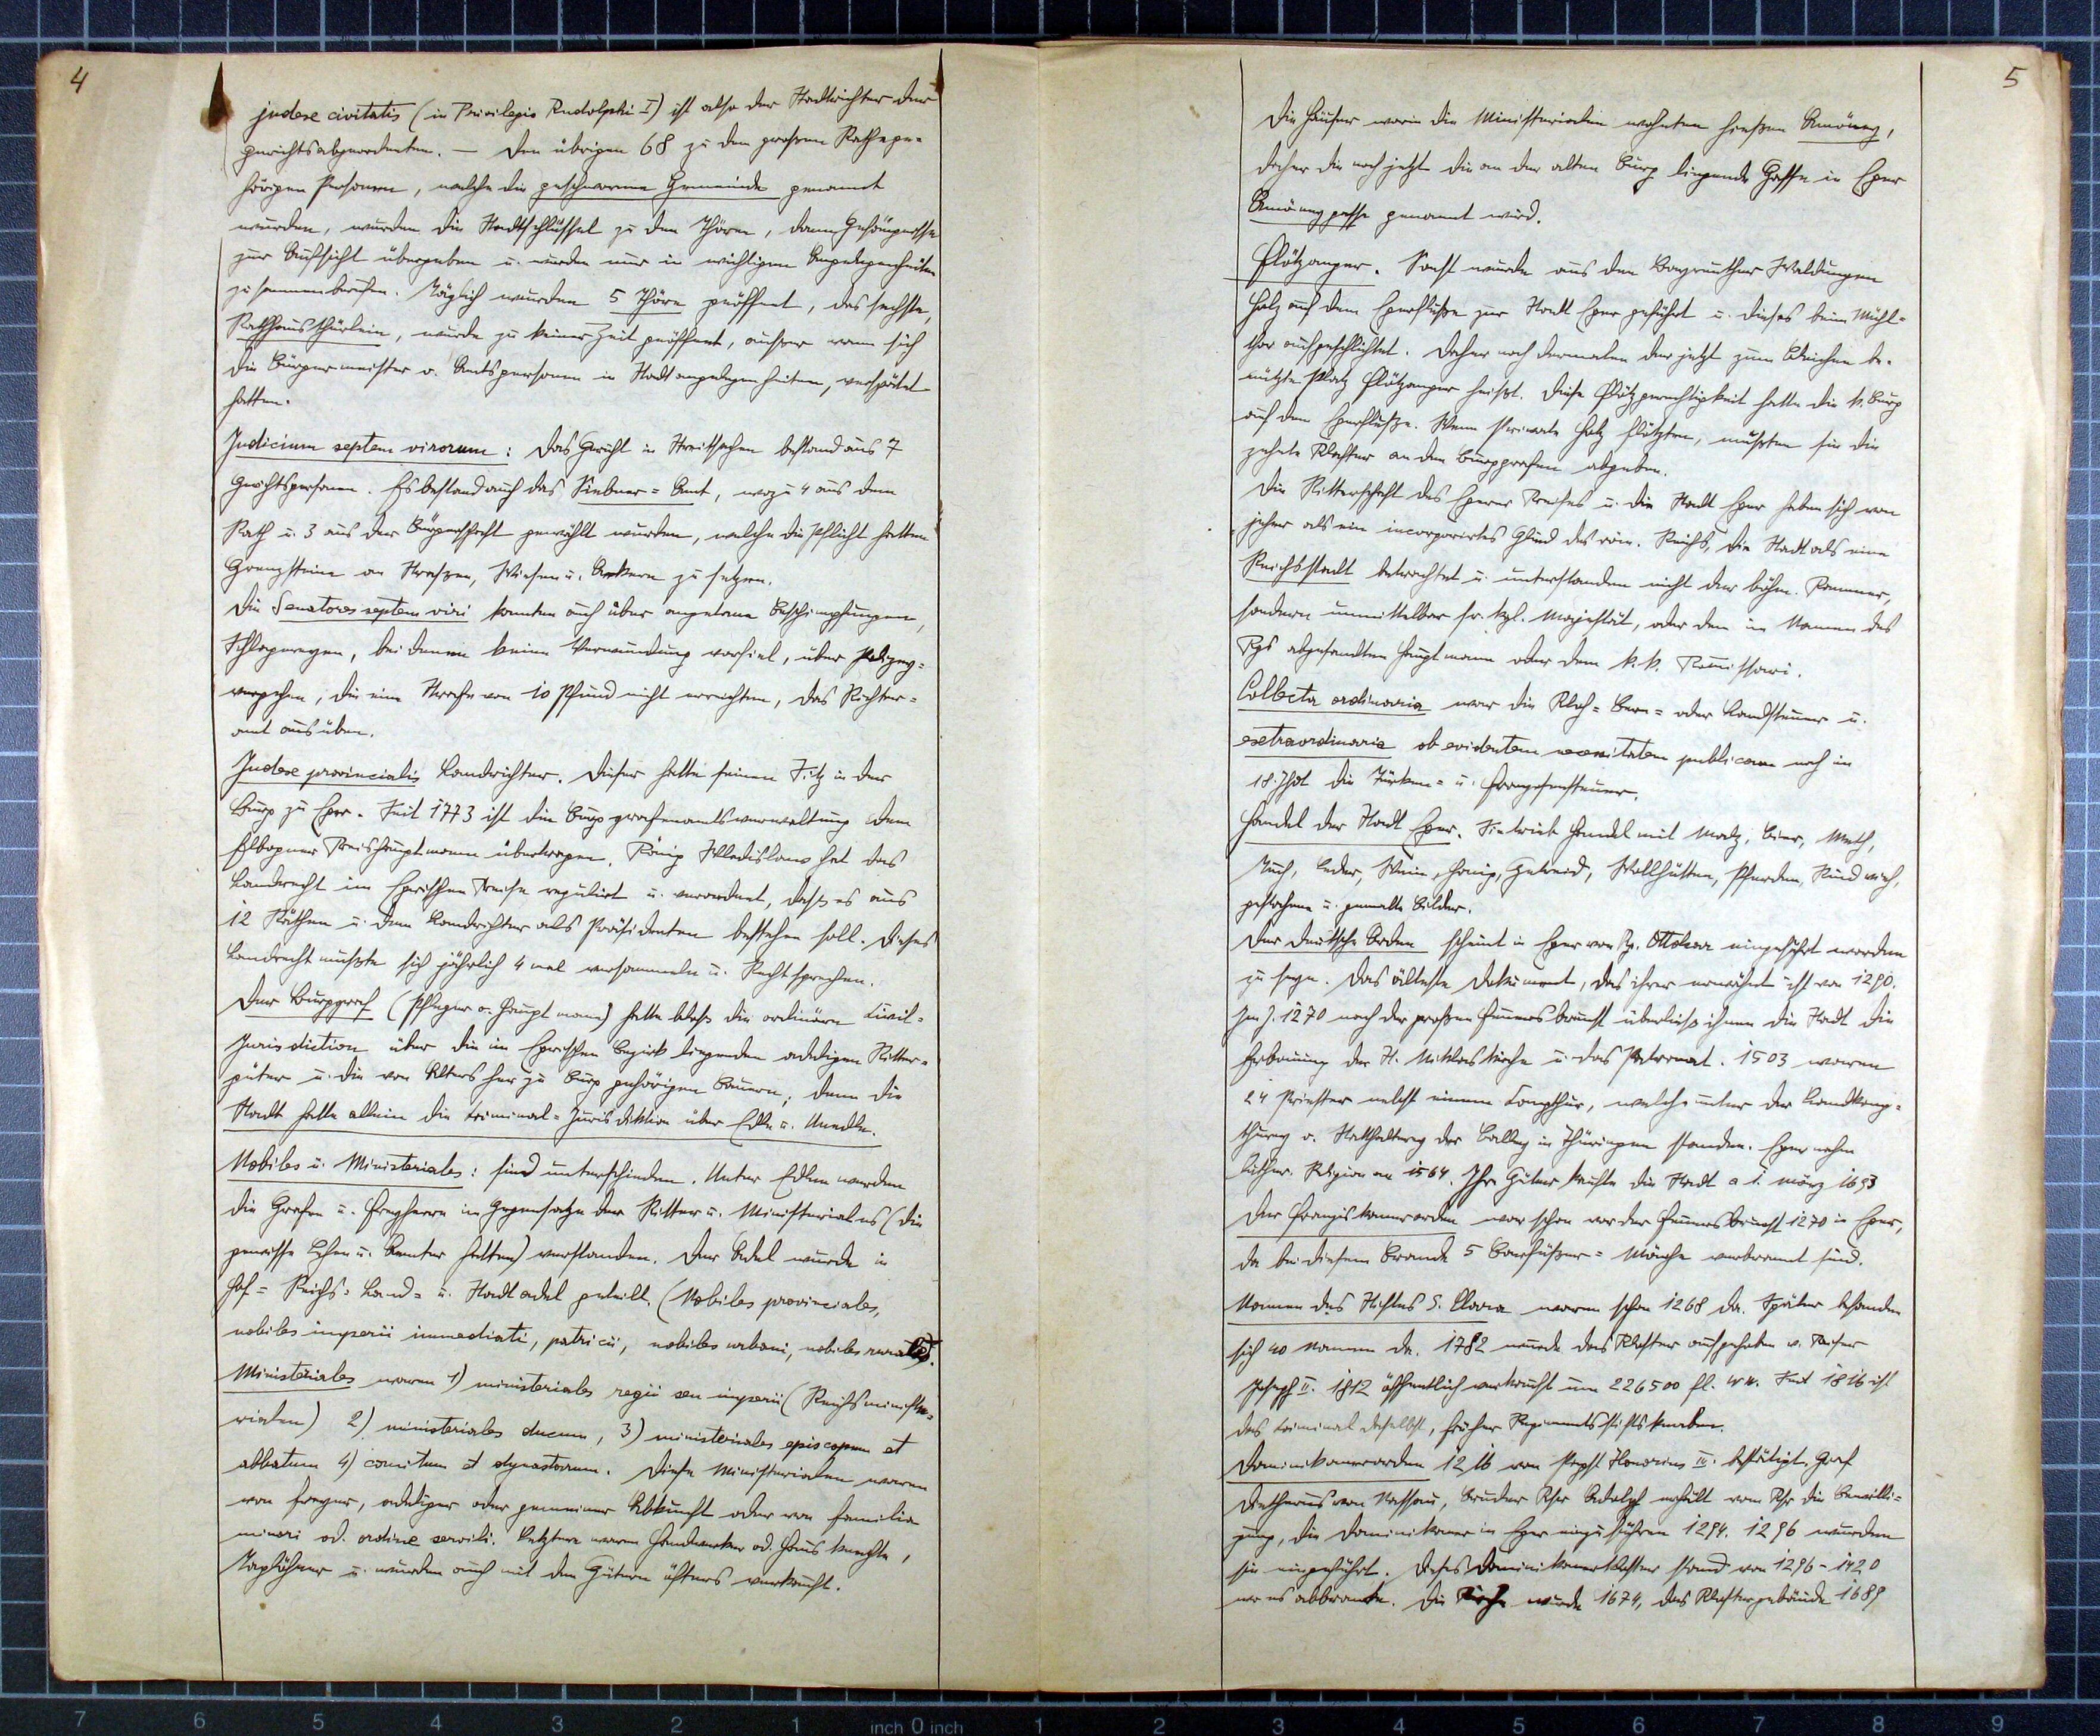 4
judex civitatis (in Privilegio Rudolphi I) ist also der Stadtrichter der
Gerichtsabgeordneten. — Den übrigen 68 zu dem großen Rathe ge-
hörigen Personen, welche die geschworne Gemeinde genannt
wurden, wurden die Stadtschlüssel zu den Thören, dann Gefängnisse
zur Aufsicht übergeben u. wurden nur in wichtigen Angelegenheiten
zusammenberufen. Täglich wurden 5 Thöre geöffnet, das sechste,
Rathhausthürlein, wurde zu keiner Zeit geöffnet, außer wann sich
die Bürgermeister o. Amtspersonen in Stadtangelegenheiten, verspätet
hatten.
Judicium septem virorum: Das Gericht in Streitsachen bestand aus 7
Gerichtspersonen. Es bestand auch das Siebner=Amt, wozu 4 aus dem
Rath u. 3 aus der Bürgerschaft gewählt wurden, welche die Pflicht hatten
Grenzsteine an Straßen, Wiesen u. Äckern zu setzen.
Die Senatores septem viri konnten auch über angetane Beschimpfungen,
Schlägereyen, bei denen keine Verwundung vorfiel, über Polizey=
vergehen, die eine Strafe von 10 Pfund nicht erreichten, das Richter=
amt ausüben.
Judex provincialis Landrichter. Dieser hatte seinen Sitz in der
Burg zu Eger. Seit 1773 ist die Burggrafenamtsverwaltung dem
Elbogner Kreishauptmann übertragen. König Wladislaw hat das
Landrecht im Egrischen Kreise regulirt u. verordnet, daß es aus
12 Räthen u. dem Landrichter als Präsidenten bestehen soll. Dieses
Landrecht mußte sich jährlich 4 mal versammeln u. Recht sprechen.
Der Burggraf (Pfleger o. Hauptmann) hatte bloß die ordinäre Civil=
Jurisdiction über die im Egrischen Bezirk liegenden adeligen Ritter=
güter u. die von Alters her zu Burg gehörigen Bauern; denn die
Stadt hatte allein die Criminal=Jurisdiktion über Edle u. Unedle.
Nobiles u. Ministeriales: sind unterschieden. Unter Edlen werden
die Grafen u. Freyherrn im Gegensatze der Ritter u. Ministeriales (die
gewisse Lehen u. Ämter hatten) verstanden. Der Adel wurde in
Hof= Reichs= Land= u. Stadtadel geteilt. (Nobiles provinciales,
nobiles imperii immediati, patricii, nobiles urbani, nobiles rurales).
Ministeriales waren 1) ministeriales regii seu imperii (Reichsministe=
rialen) 2) ministeriales ducum, 3) ministeriales episcopum et
abbatum 4) comitum et dynastorum. Diese Ministerialen waren
von freyer, adeliger oder gemeiner Abkunft oder von familia
minori od. ordine servili. Letztere waren Handwerker od. Hausknechte,
Taglöhner u. wurden auch mit den Gütern öfters verkauft.
5
Die Häuser worin die Ministerialen wohnten hießen Amöney,
daher die noch jetzt die an der alten Burg liegende Gasse in Eger
Amöneygasse genannt wird.
Flötzanger. Sonst wurde aus den Bayreuther Waldungen
Holz auf dem Egerfluße zur Stadt Eger geführt u. dieses beim Mühl=
thor aufgeschlichtet. Daher noch dermalen der jetzt zum Bleichen be=
nützte Platz Flötzanger heißt. Diese Flötzgerechtigkeit hatte die k. Burg
auf dem Egerfluße. Wenn Private Holz flötzten, mußten sie die
zehnte Klafter an den Burggrafen abgeben.
Die Ritterschaft des Egerer Kreises u. die Stadt Eger haben sich von
jeher als ein incorporirtes Glied des röm. Reichs, die Stadt als eine
Reichsstadt betrachtet u. unterstanden nicht der böhm. Kammer,
sondern unmittelbar sr. kgl. Majestät, oder dem im Namen des
Kgs abgesandten Hauptmann oder dem k. k. Komissari.
Collecta ordinaria war die Kloh= Bern= oder Landsteuer u.
extraordinaria ob evidentem necessitatem publicam noch im
18. Jhdt die Türken= u. Franzosensteuer.
Handel der Stadt Eger. Sie trieb Handel mit Malz, Bier, Meth,
Tuch, Leder, Wein, Honig, Getreid, Wollhütten, Pferden, Rindvieh,
gestochene u. gemalte Bilder.
Der deutsche Orden scheint in Eger von Kg. Ottokar eingeführt worden
zu seyn. Das älteste Dokument, das ihrer erwähnt ist von 1290.
Im J. 1270 nach der großen Feuersbrunst überließ ihnen die Stadt die
Erbauung der St. Niklaskirche u. das Patronat. 1503 waren
24 Priester nebst einem Comthur, welche unter der Landkom=
thurey o. Statthalterey der Balley in Thüringen standen. Eger nahm
luther. Religion an 1564. Ihre Güter kaufte die Stadt a 1. März 1693
Der Franziskanerorden war schon vor der Feuersbrunst 1270 in Eger,
da bei diesem Brande 5 Barfüßer=Mönche verbrannt sind.
Nonnen des Stiftes S. Clara waren schon 1268 da. Später befanden
sich 40 Nonnen da. 1782 wurde das Kloster aufgehoben v. Kaiser
Joseph II. 1812 öffentlich verkauft um 226500 fl. WW. Seit 1816 ist
das Criminal daselbst, früher Regimentsstiftsknaben.
Dominikanerorden 1216 von Papst Honorius III. bestätigt. Graf
Dietherus von Nassau, Bruder Ksr Adolph erhielt vom Ksr die Bewilli=
gung, die Dominikaner in Eger einzuführen 1294. 1296 wurden
sie eingeführt. Dieses Dominikanerkloster stand von 1296-1420
wo es abbrannte. Die Kirche wurde 1674, das Klostergebäude 1689
7 6 5 4 3 2 1 inch 0 inch 1 2 3 4 5 6 7 8 9